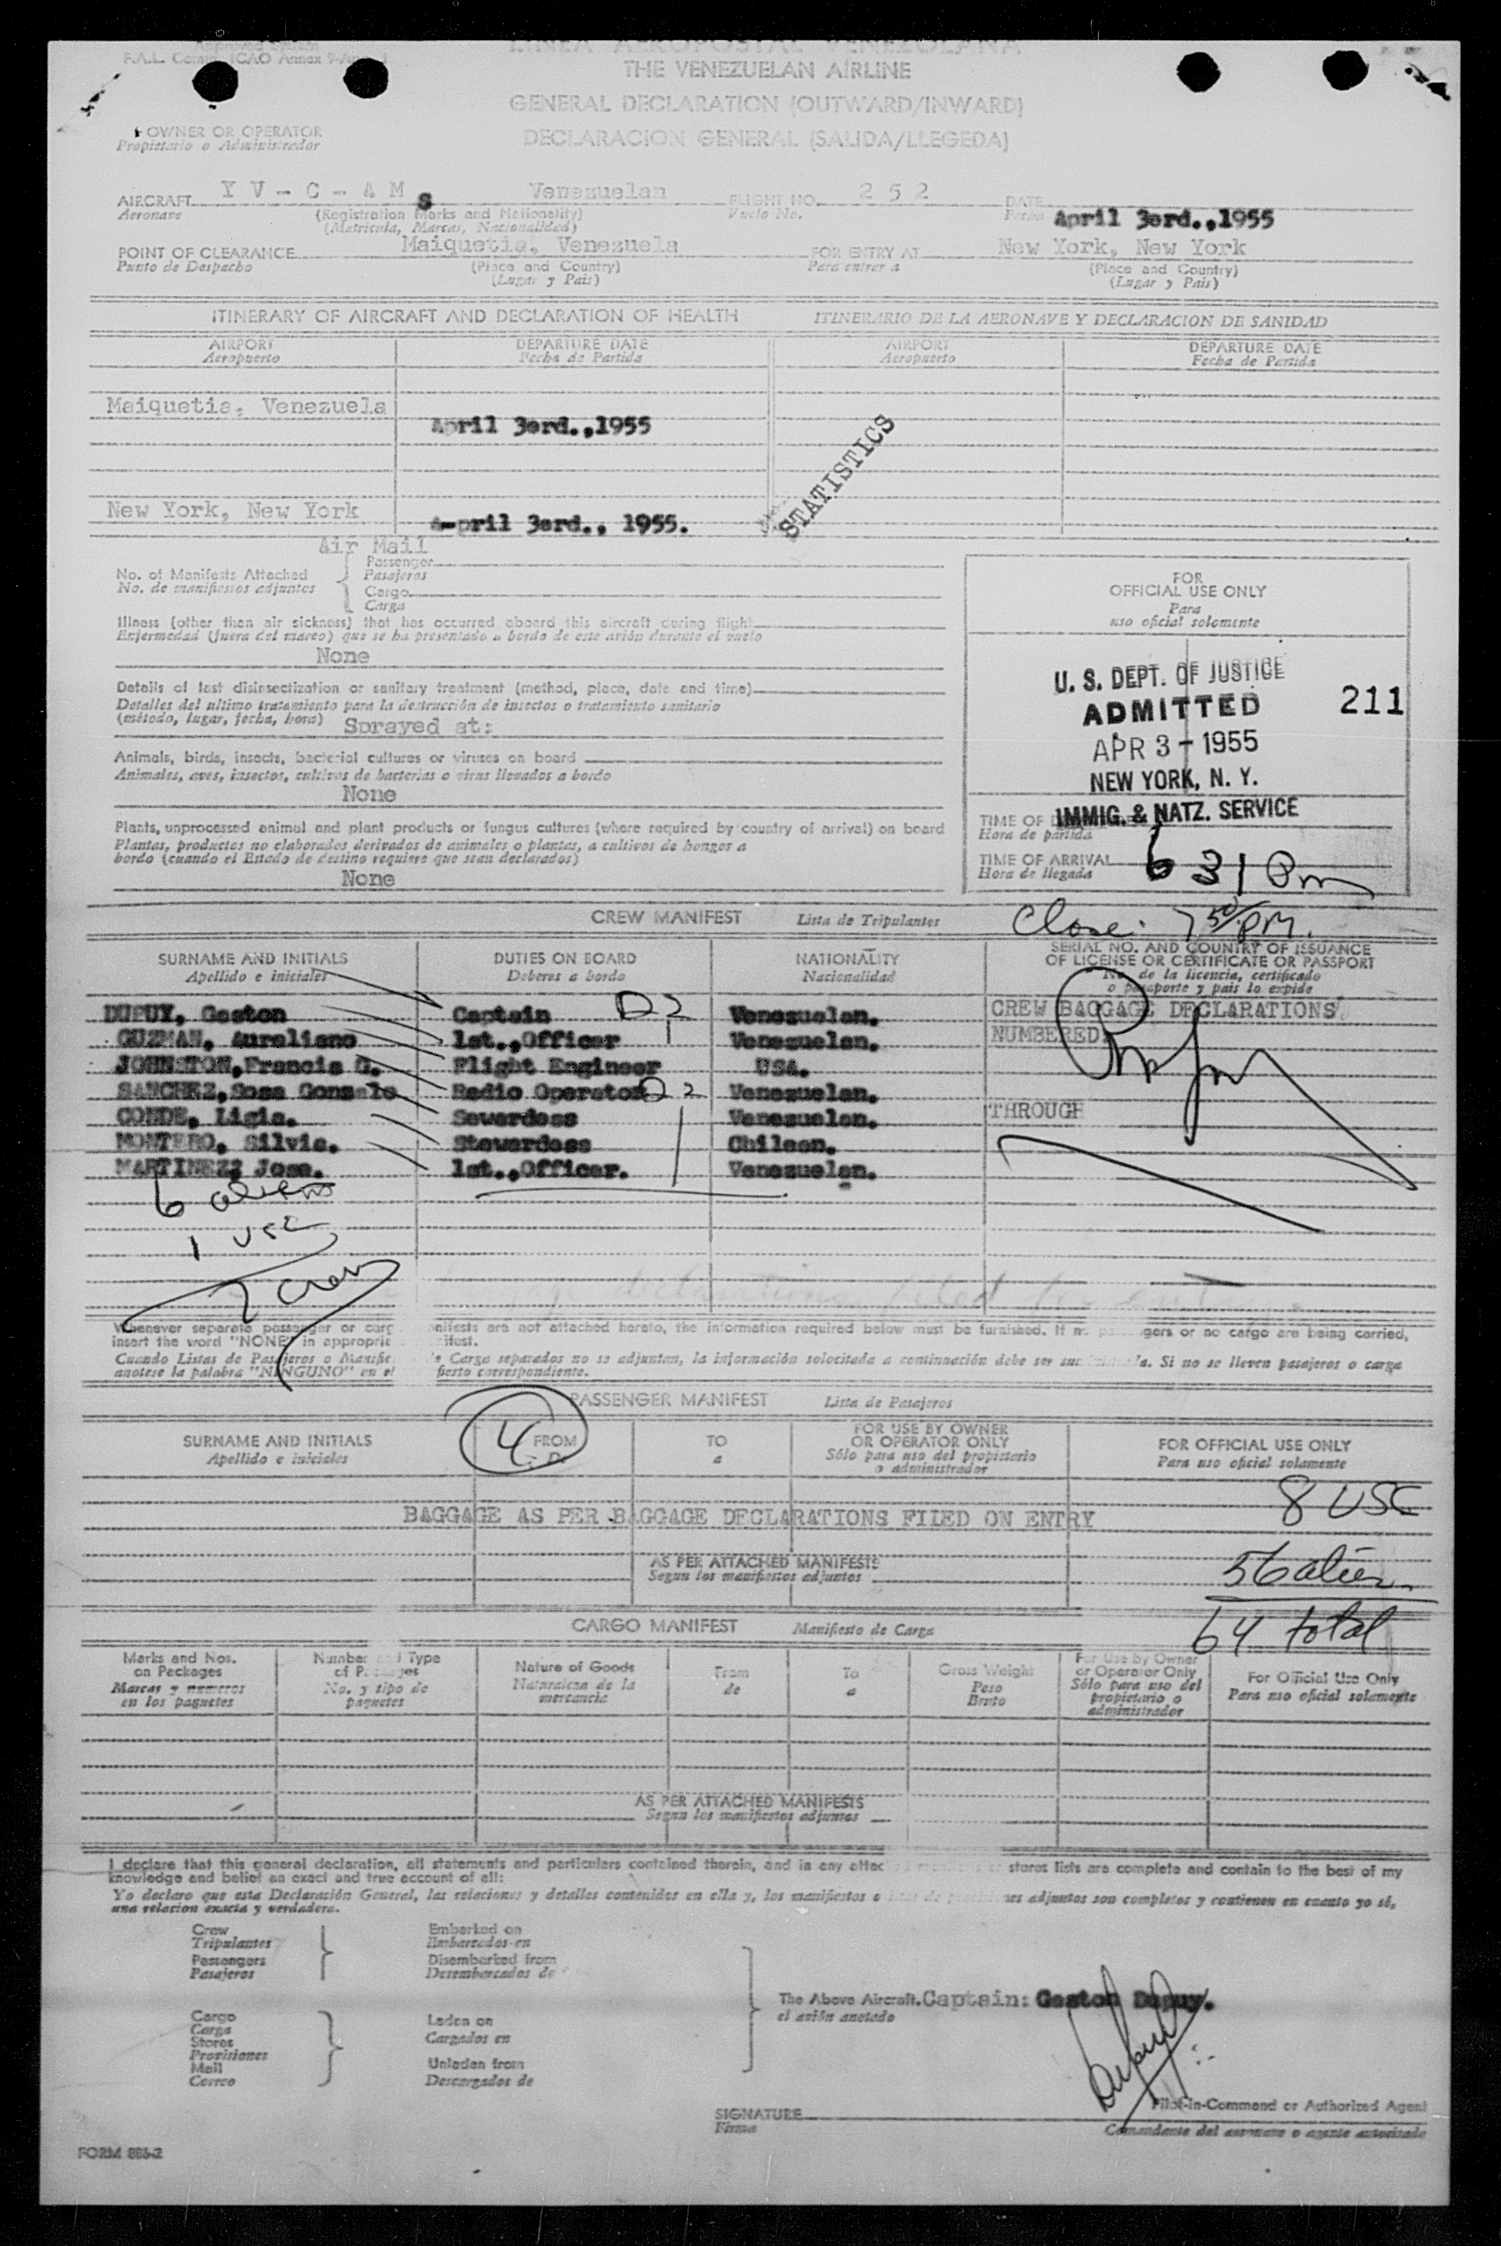 LINEA AEROPOSTAL VENEZOLANA
THE VENEZUELAN AIRLINE
GENERAL DECLARATION (OUTWARD/INWARD)
DECLARACION GENERAL (SALIDA/LLEGEDA)
OWNER OR OPERATOR
Propietario o Administrador
AIRCRAFT Y V - C - A M S Venezuelan FLIGHT NO. 2 5 2 DATE
Aeronave (Registration Marks and Nationality) Vuelo No. Fecha April 3erd.,1955
(Matricula, Marcas, Nacionalidad)
POINT OF CLEARANCE Maiquetia, Venezuela FOR ENTRY AT New York, New York
Punto de Despacho (Place and Country) Para entrar a (Place and Country)
(Lugar y Pais) (Lugar y Pais)
ITINERARY OF AIRCRAFT AND DECLARATION OF HEALTH ITINERARIO DE LA AERONAVE Y DECLARACION DE SANIDAD
AIRPORT DEPARTURE DATE AIRPORT DEPARTURE DATE
Aeropuerto Fecha de Partida Aeropuerto Fecha de Partida
Maiquetia, Venezuela
April 3erd.,1955
STATISTICS
New York, New York
A-pril 3erd., 1955.
Air Mail
Passenger
No. of Manifests Attached Pasajeros
No. de manifiestos adjuntos Cargo
Carga
FOR
OFFICIAL USE ONLY
Para
uso oficial solamente
Illness (other than air sickness) that has occurred aboard this aircraft during flight
Enfermedad (fuera del mareo) que se ha presentado a bordo de este avión durante el vuelo
None
Details of last disinsectization or sanitary treatment (method, place, date and time)
Detalles del ultimo tratamiento para la destrucción de insectos o tratamiento sanitario
(método, lugar, fecha, hora) Sprayed at:
U. S. DEPT. OF JUSTICE
ADMITTED 211
APR 3 - 1955
NEW YORK, N. Y.
IMMIG. & NATZ. SERVICE
Animals, birds, insects, bacterial cultures or viruses on board
Animales, aves, insectos, cultivos de bacterias o virus llevados a bordo
None
Plants, unprocessed animal and plant products or fungus cultures (where required by country of arrival) on board
Plantas, productos no elaborados derivados de animales o plantas, a cultivos de hongos a
bordo (cuando el Estado de destino requiere que sean declarados)
None
TIME OF
Hora de partida
TIME OF ARRIVAL 6 31 Pm
Hora de llegada
CREW MANIFEST Lista de Tripulantes Close: 7 50/PM.
SURNAME AND INITIALS DUTIES ON BOARD NATIONALITY SERIAL NO. AND COUNTRY OF ISSUANCE
Apellido e iniciales Deberes a bordo Nacionalidad OF LICENSE OR CERTIFICATE OR PASSPORT
No. de la licencia, certificado
o pasaporte y pais lo expide
DUPUY, Gaston Captain D2 Venezuelan. CREW BAGGAGE DECLARATIONS
GUZMAN, Aureliano 1st.,Officer 1 Venezuelan. NUMBERED
JOHNSTON,Francis G. Flight Engineer USA.
SANCHEZ,Sosa Gonzalo Radio Operator D2 Venezuelan.
CONDE, Ligia. Sewardess Venezuelan. THROUGH
MONTERO, Silvia. Stewardess Chilean.
MARTINEZ, Jose. 1st.,Officer. Venezuelan.
6 aliens
1 USC
7 Crew
Whenever separate passenger or carg nifests are not attached hereto, the information required below must be furnished. If n pa gers or no cargo are being carried,
insert the word "NONE" in appropri ifest.
Cuando Listas de Pasajeros o Manifie Carga separados no se adjuntan, la información solocitada a continuación debe ser sum a. Si no se lleven pasajeros o carga
anotese la palabra "NINGUNO" en el fiesto correspondiente.
PASSENGER MANIFEST Lista de Pasajeros
4
SURNAME AND INITIALS FROM TO FOR USE BY OWNER FOR OFFICIAL USE ONLY
Apellido e iniciales De a OR OPERATOR ONLY Para uso oficial solamente
Sólo para uso del propietario
o administrador
8 USC
BAGGAGE AS PER BAGGAGE DECLARATIONS FILED ON ENTRY
AS PER ATTACHED MANIFESTS
Segun los manifiestos adjuntos
56 alien
64 total
CARGO MANIFEST Manifiesto de Carga
Marks and Nos. Number and Type Nature of Goods From To Gross Weight For Use by Owner For Official Use Only
on Packages of Packages Naturaleza de la de a Peso or Operator Only Para uso oficial solamente
Marcas y numeros No. y tipo de mercancia Bruto Sólo para uso del
en los paquetes paquetes propietario o
administrador
AS PER ATTACHED MANIFESTS
Segun los manifiestos adjuntos
I declare that this general declaration, all statements and particulars contained therein, and in any attac stores lists are complete and contain to the best of my
knowledge and belief an exact and true account of all:
Yo declaro que esta Declaración General, las relaciones y detalles contenidos en ella y, los manifiestos o adjuntos son completos y contienen en cuanto yo sé,
una relacion exacta y verdadera.
Crew Embarked on
Tripulantes Embarcados en
Passengers Disembarked from
Pasajeros Desembarcados de
The Above Aircraft. Captain: Gaston Dupuy.
el avión anotado
Cargo Laden on
Carga Cargados en
Stores
Provisiones
Mail Unladen from
Correo Descargados de
SIGNATURE Pilot-in-Command or Authorized Agent
Firma Comandante del aeronave o agente autorizado
FORM 886-2